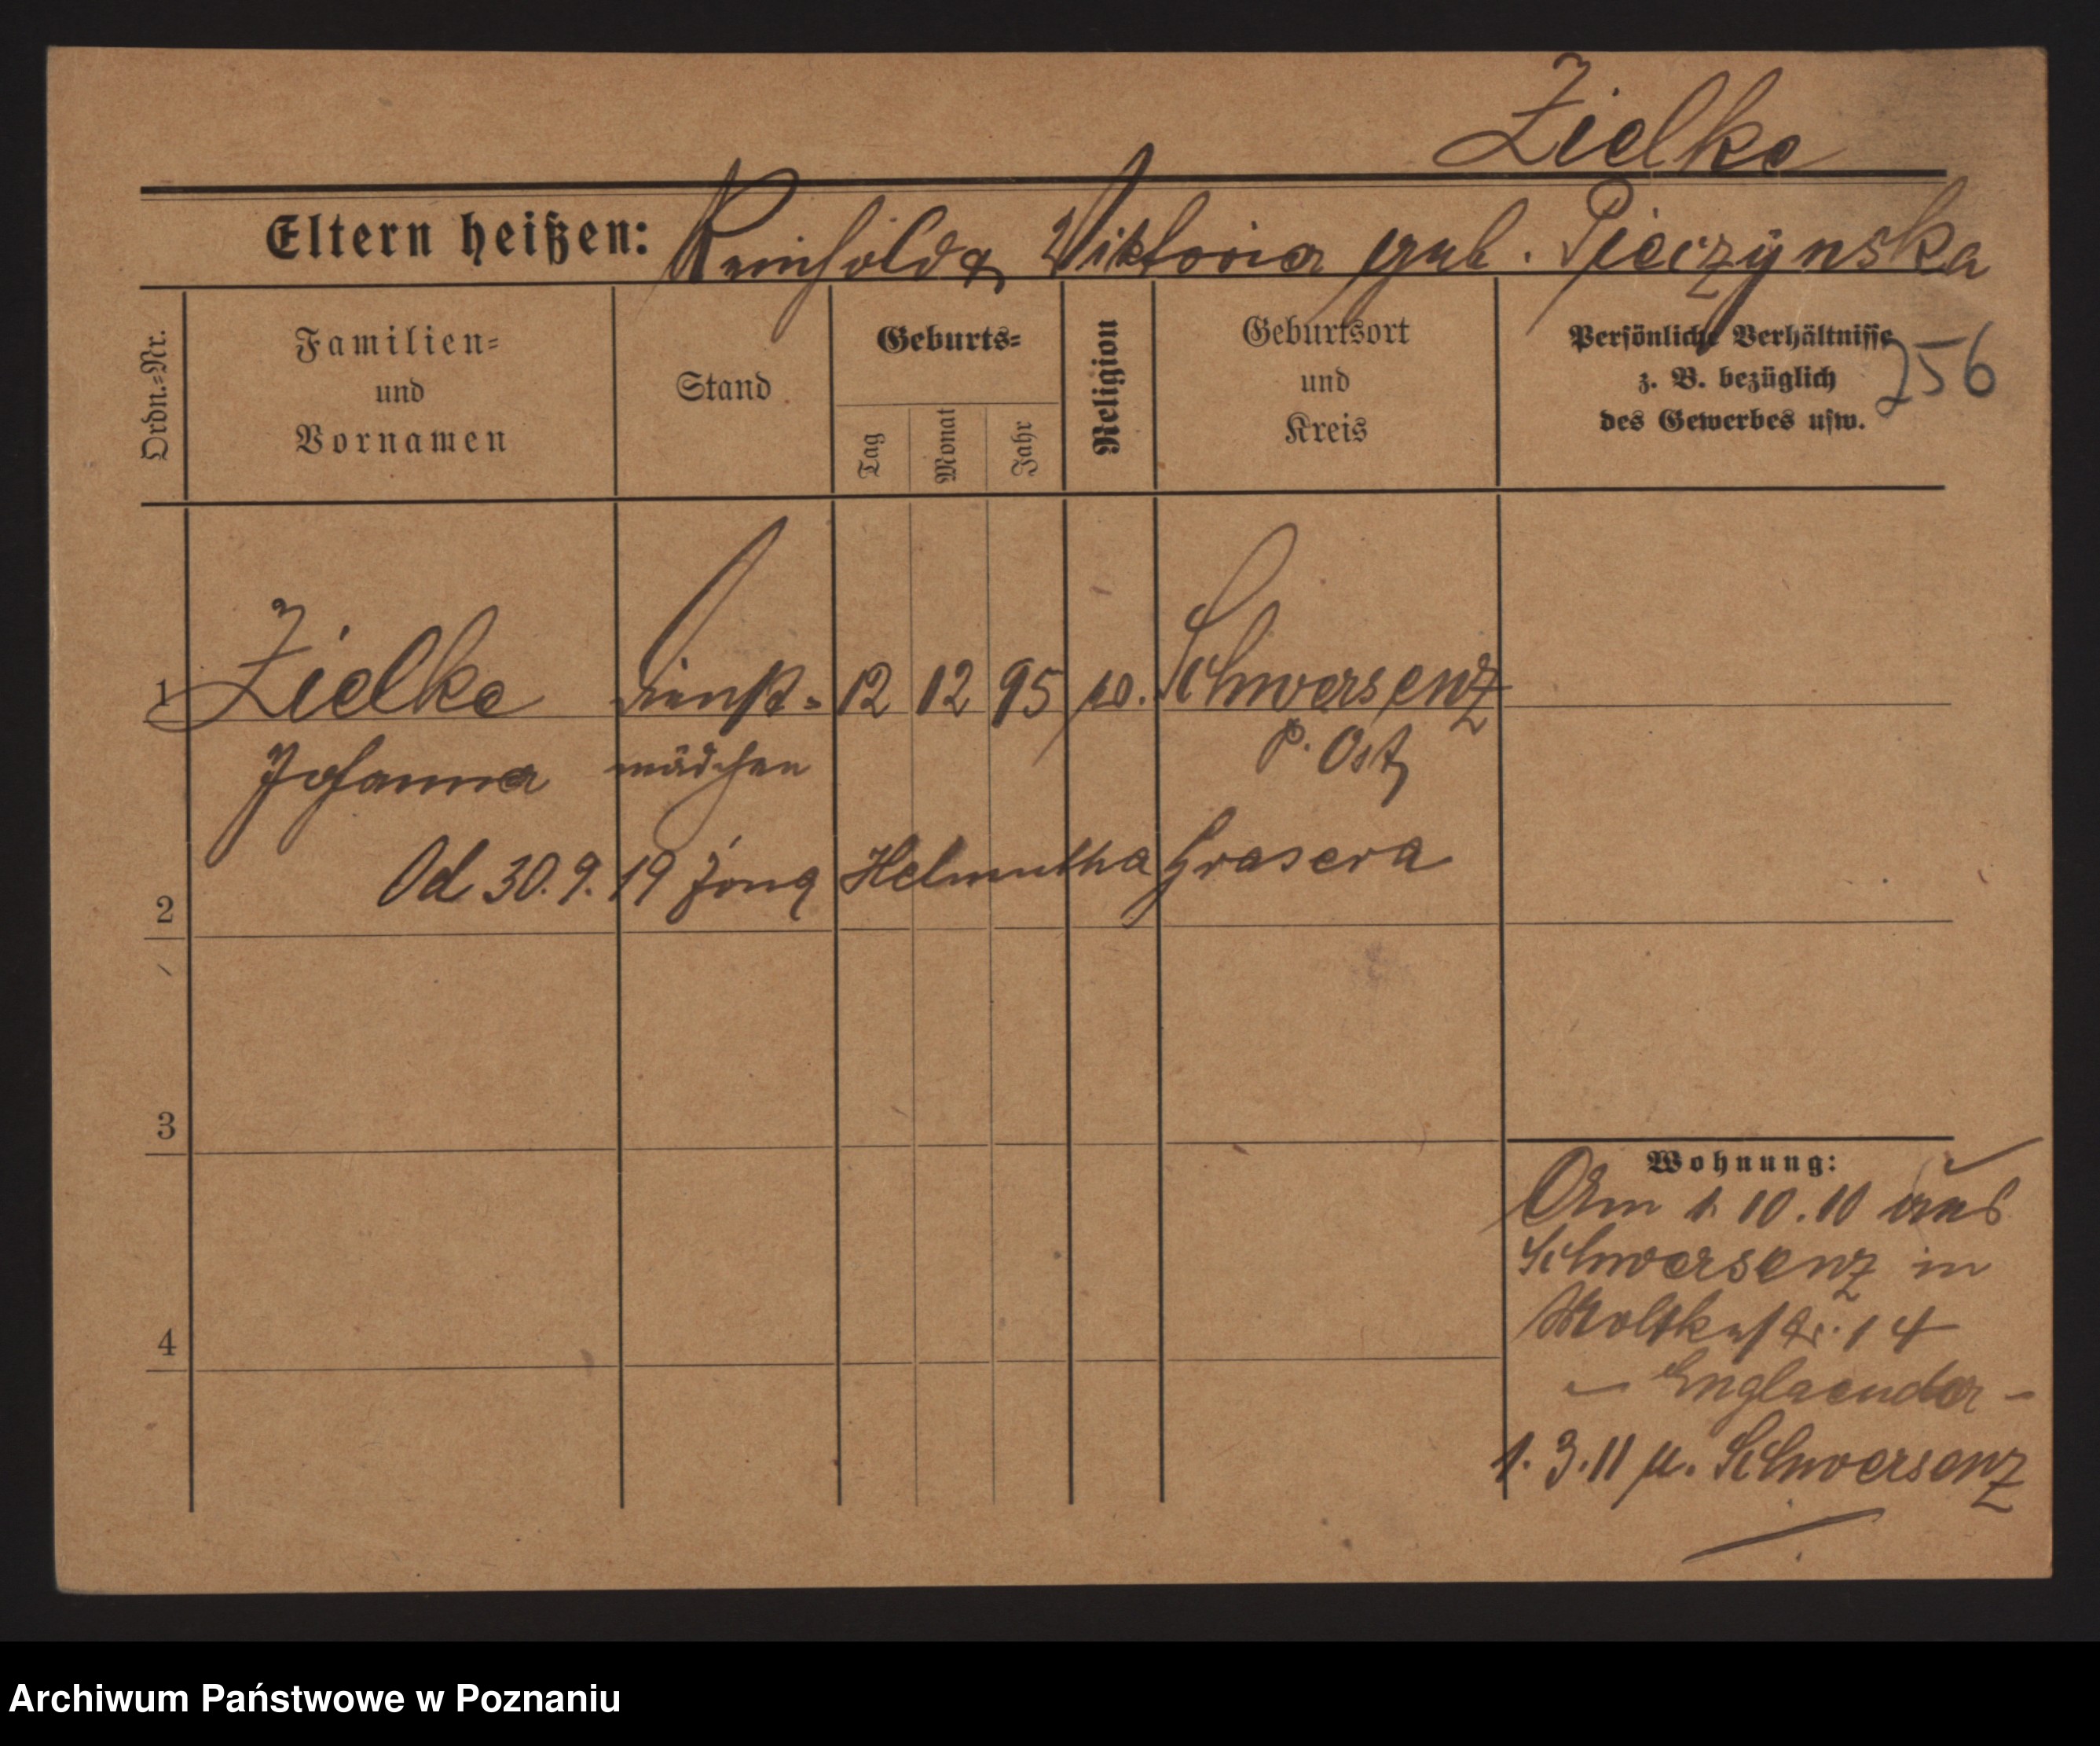 Zielke
Eltern heißen: Reinhold & Viktoria geb. Pieczynska
Ordn.-Nr.
Familien- und Vornamen
Stand
Geburts-
Tag
Monat
Jahr
Religion
Geburtsort und Kreis
Persönliche Verhältnisse
z. B. bezüglich
des Gewerbes usw.
256
1 Zielke Dienst- 12 12 95 Schwersenz
Johanna mädchen P. Ost
Od 30.9.19 żoną Helmutha Grasera
2
3
4
Wohnung:
Am 1. 10. 10 aus
Schwersenz in
Moltkestr. 14
- Englaender -
1. 3. 11 n. Schwersenz
Archiwum Państwowe w Poznaniu